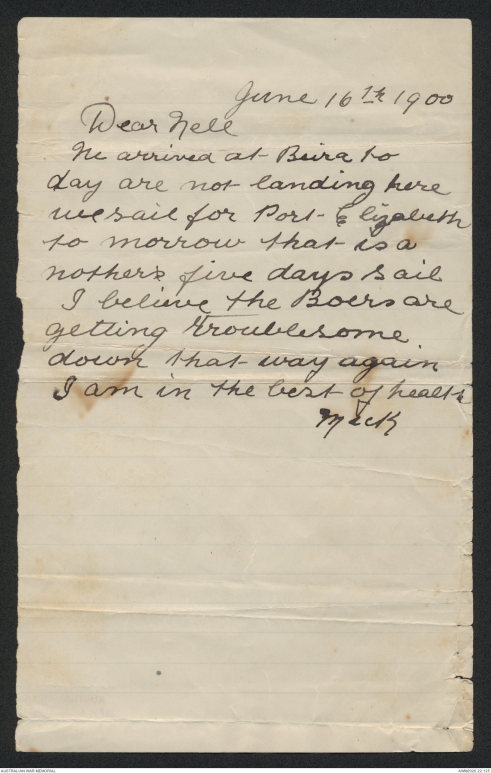 June 16th 1900
Dear Nell
We arrived at Beira to
day are not landing here
we sail for Port Elizabeth
to morrow that is a
nothers five days sail
I believe the Boers are
getting troublesome
down that way again
I am in the best of health
Mick
AUSTRALIAN WAR MEMORIAL